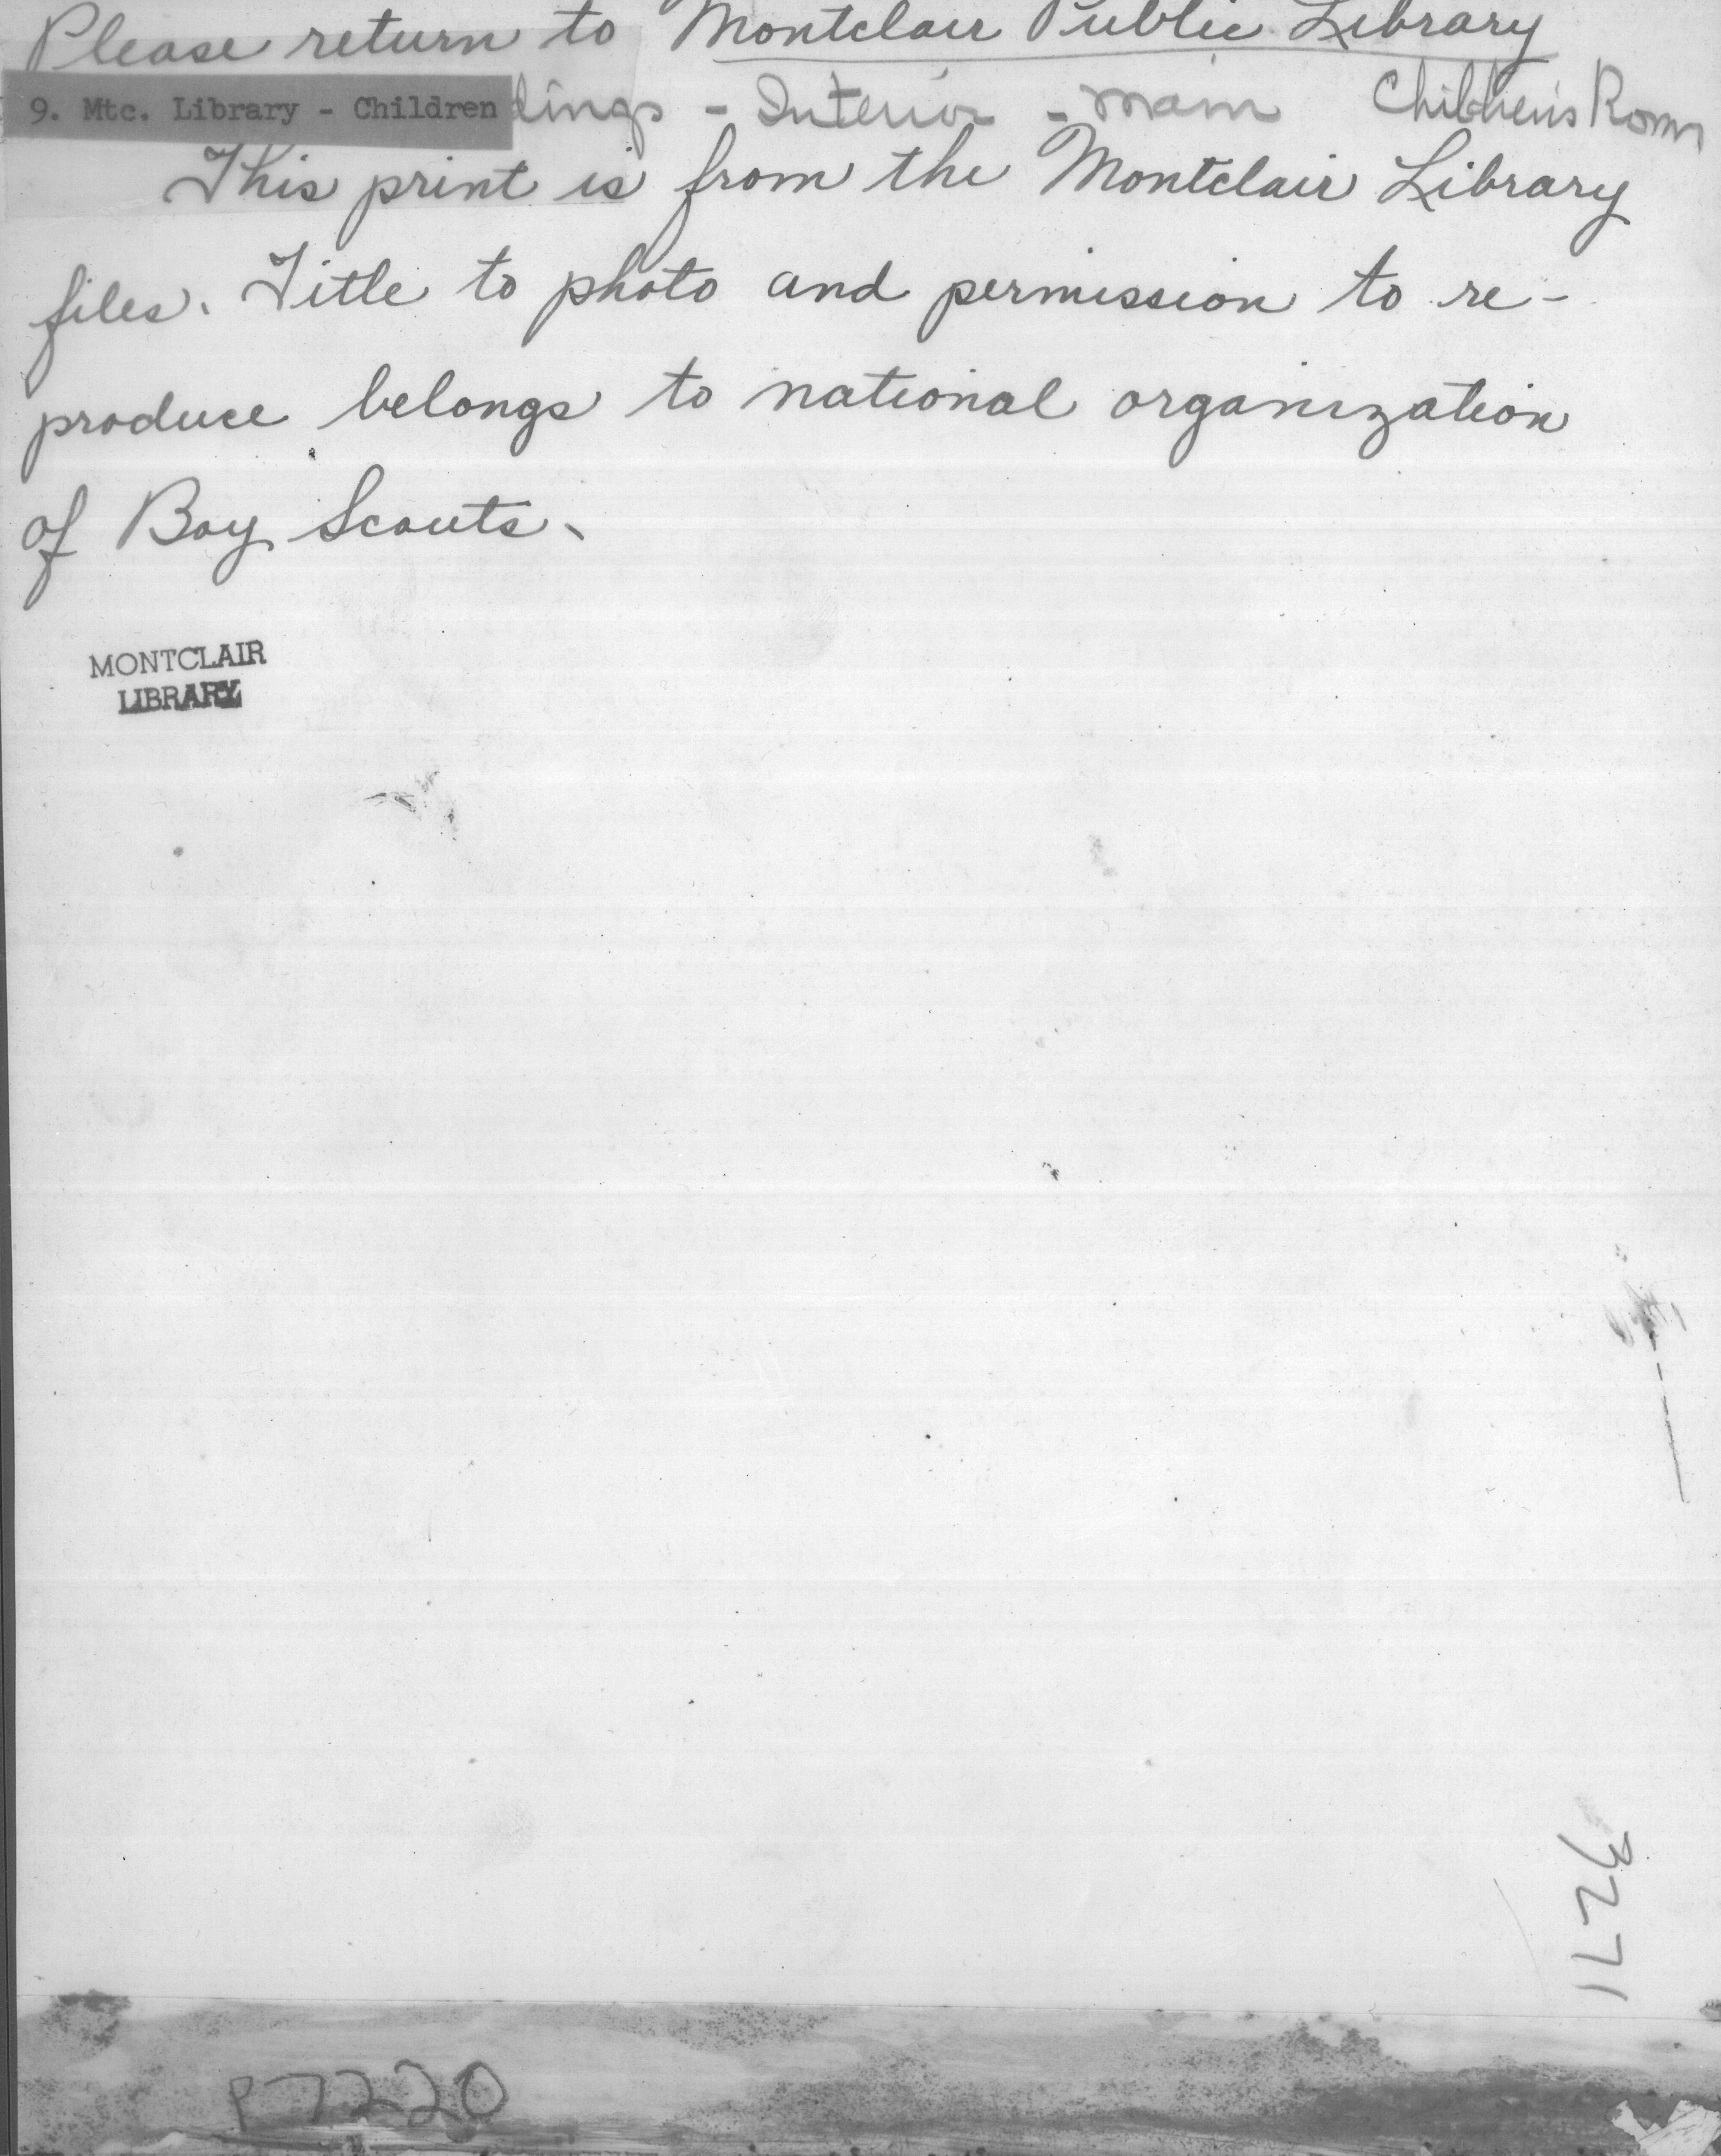 Please return to Montclair Public Library
9. Mtc. Library - Children dings - Interior - Main Children's Room
This print is from the Montclair Library
files. Title to photo and permission to re-
produce belongs to national organization
of Boy Scouts.
MONTCLAIR
LIBRARY
3271
P7220